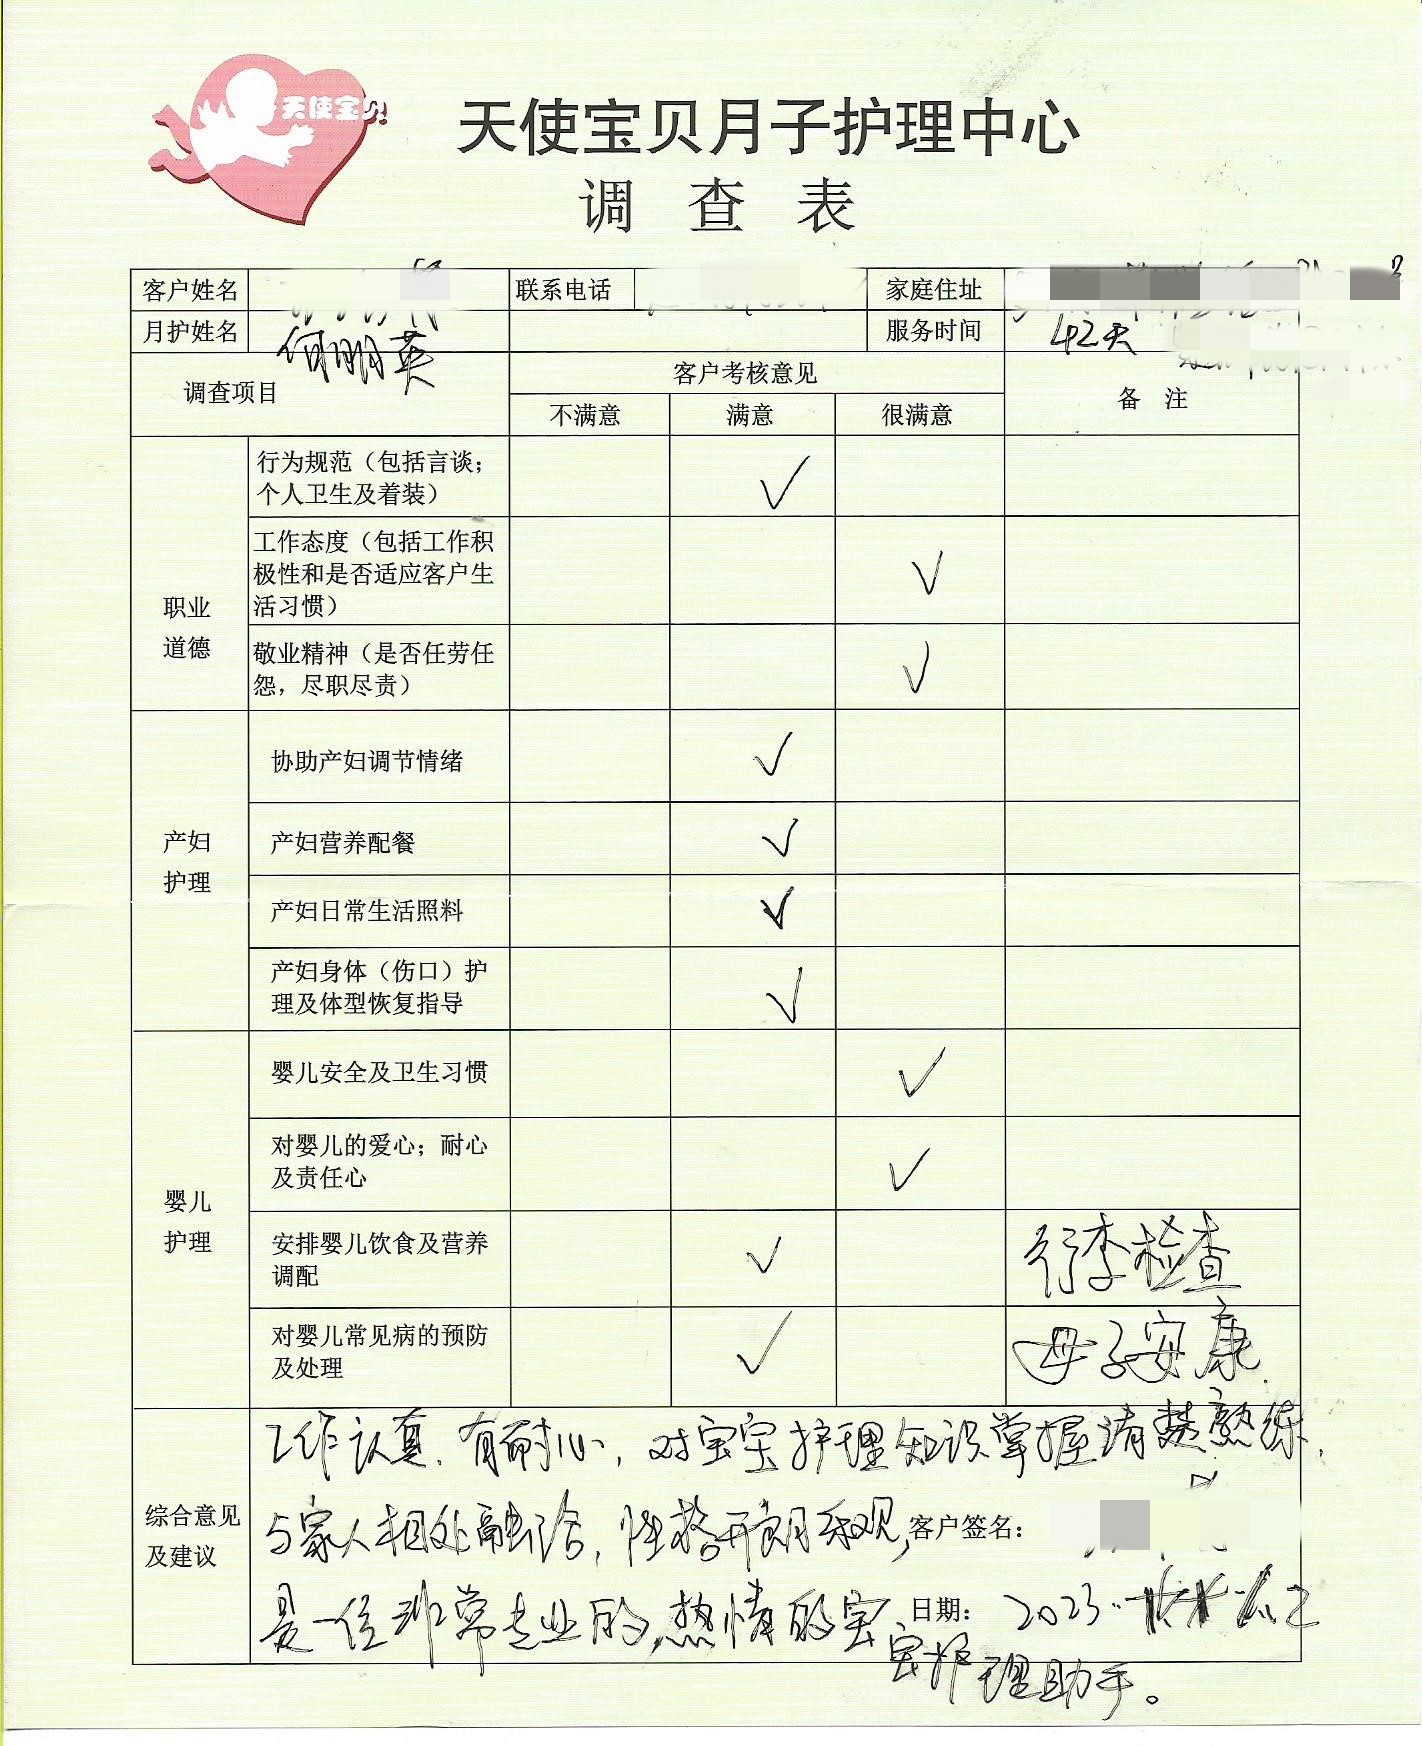 天使宝贝
天使宝贝月子护理中心
调查表
客户姓名 联系电话 家庭住址
月护姓名 何明英 服务时间 42天
调查项目 客户考核意见 备注
不满意 满意 很满意
职业
道德
行为规范（包括言谈；
个人卫生及着装） ✓
工作态度（包括工作积
极性和是否适应客户生
活习惯） ✓
敬业精神（是否任劳任
怨，尽职尽责） ✓
产妇
护理
协助产妇调节情绪 ✓
产妇营养配餐 ✓
产妇日常生活照料 ✓
产妇身体（伤口）护
理及体型恢复指导 ✓
婴儿
护理
婴儿安全及卫生习惯 ✓
对婴儿的爱心；耐心
及责任心 ✓
安排婴儿饮食及营养
调配 ✓ 行李检查
对婴儿常见病的预防
及处理 ✓ 母子安康
综合意见
及建议
工作认真、有耐心，对宝宝护理知识掌握清楚熟练，
与家人相处融洽，性格开朗乐观， 客户签名：
是一位非常专业的，热情的宝 日期： 2023
宝护理助手。